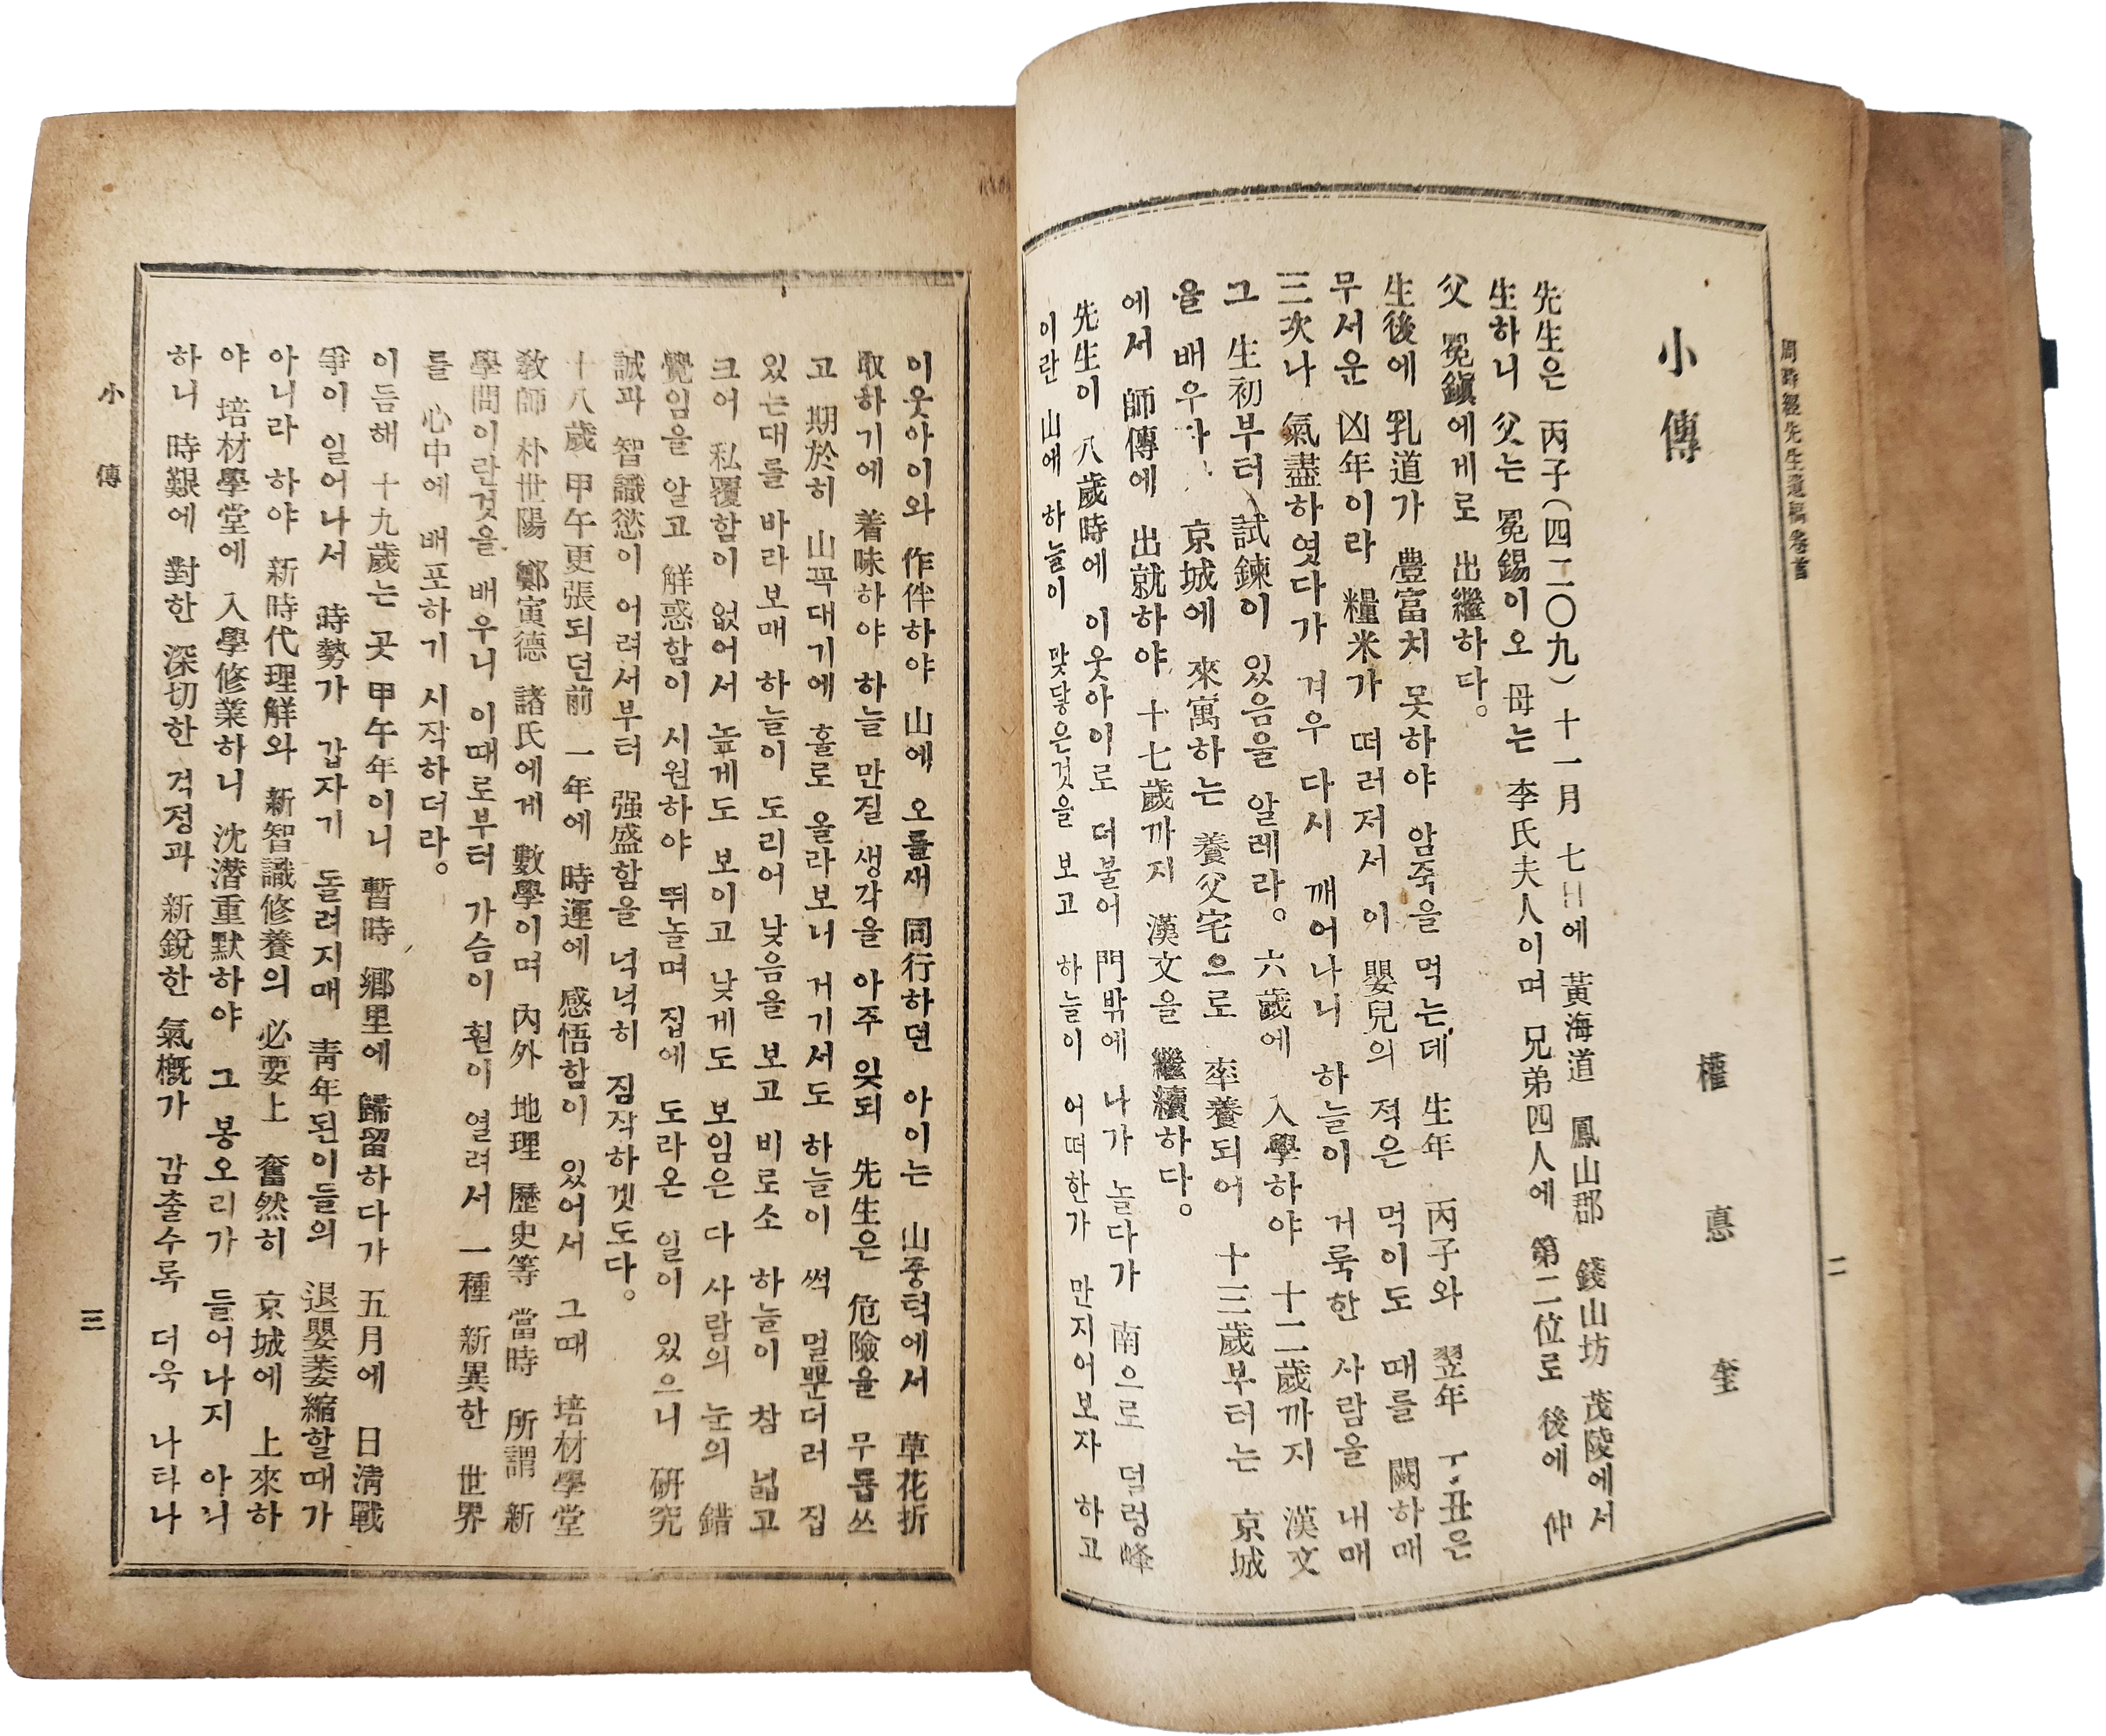 周時經先生遺稿卷首
二
小傳
權悳奎
先生은 丙子(四二〇九) 十一月 七日에 黃海道 鳳山郡 錢山坊 茂陵에서
生하니 父는 冕錫이오 母는 李氏夫人이며 兄弟四人에 第二位로 後에 仲
父 冕鎭에게로 出繼하다。
生後에 乳道가 豊富치 못하야 암죽을 먹는데 生年 丙子와 翌年 丁丑은
무서운 凶年이라 糧米가 떠러저서 이 嬰兒의 적은 먹이도 때를 闕하매
三次나 氣盡하엿다가 겨우 다시 깨어나니 하늘이 거룩한 사람을 내매
그 生初부터 試鍊이 있음을 알레라。六歲에 入學하야 十二歲까지 漢文
을 배우다 京城에 來寓하는 養父宅으로 率養되어 十三歲부터는 京城
에서 師傅에 出就하야 十七歲까지 漢文을 繼續하다。
先生이 八歲時에 이웃아이로 더불어 門밖에 나가 놀다가 南으로 덜렁峰
이란 山에 하늘이 맞닿은것을 보고 하늘이 어떠한가 만지어보자 하고
이웃아이와 作伴하야 山에 오를새 同行하던 아이는 山중턱에서 草花折
取하기에 着味하야 하늘 만질 생각을 아주 잊되 先生은 危險을 무릅쓰
고 期於히 山꼭대기에 홀로 올라보니 거기서도 하늘이 썩 멀뿐더러 집
있는대를 바라보매 하늘이 도리어 낮음을 보고 비로소 하늘이 참 넓고
크어 私覆함이 없어서 높게도 보이고 낮게도 보임은 다 사람의 눈의 錯
覺임을 알고 解惑함이 시원하야 뛰놀며 집에 도라온 일이 있으니 硏究
誠과 智識慾이 어려서부터 强盛함을 넉넉히 짐작하겟도다。
十八歲 甲午更張되던前 一年에 時運에 感悟함이 있어서 그때 培材學堂
敎師 朴世陽 鄭寅德 諸氏에게 數學이며 內外 地理 歷史等 當時 所謂 新
學問이란것을 배우니 이때로부터 가슴이 훤이 열려서 一種 新異한 世界
를 心中에 배포하기 시작하더라。
이듬해 十九歲는 곳 甲午年이니 暫時 鄕里에 歸留하다가 五月에 日淸戰
爭이 일어나서 時勢가 갑자기 돌려지매 靑年된이들의 退嬰萎縮할때가
아니라 하야 新時代理解와 新智識修養의 必要上 奮然히 京城에 上來하
야 培材學堂에 入學修業하니 沈潛重默하야 그 봉오리가 들어나지 아니
하니 時艱에 對한 深切한 걱정과 新銳한 氣槪가 감출수록 더욱 나타나
小傳
三